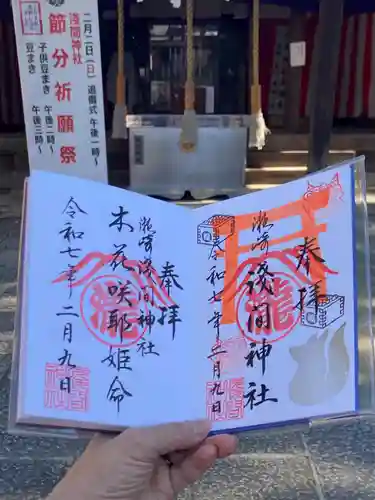 二月二日(日)追儺式午後一時〜
浅間神社
節分祈願祭
子供豆まき 午後二時〜
豆まき 午後三時〜
奉拝
瀬崎浅間神社
木花咲耶姫命
令和七年二月九日
瀧
奉拝
瀬崎
浅間神社
令和七年二月九日
瀧